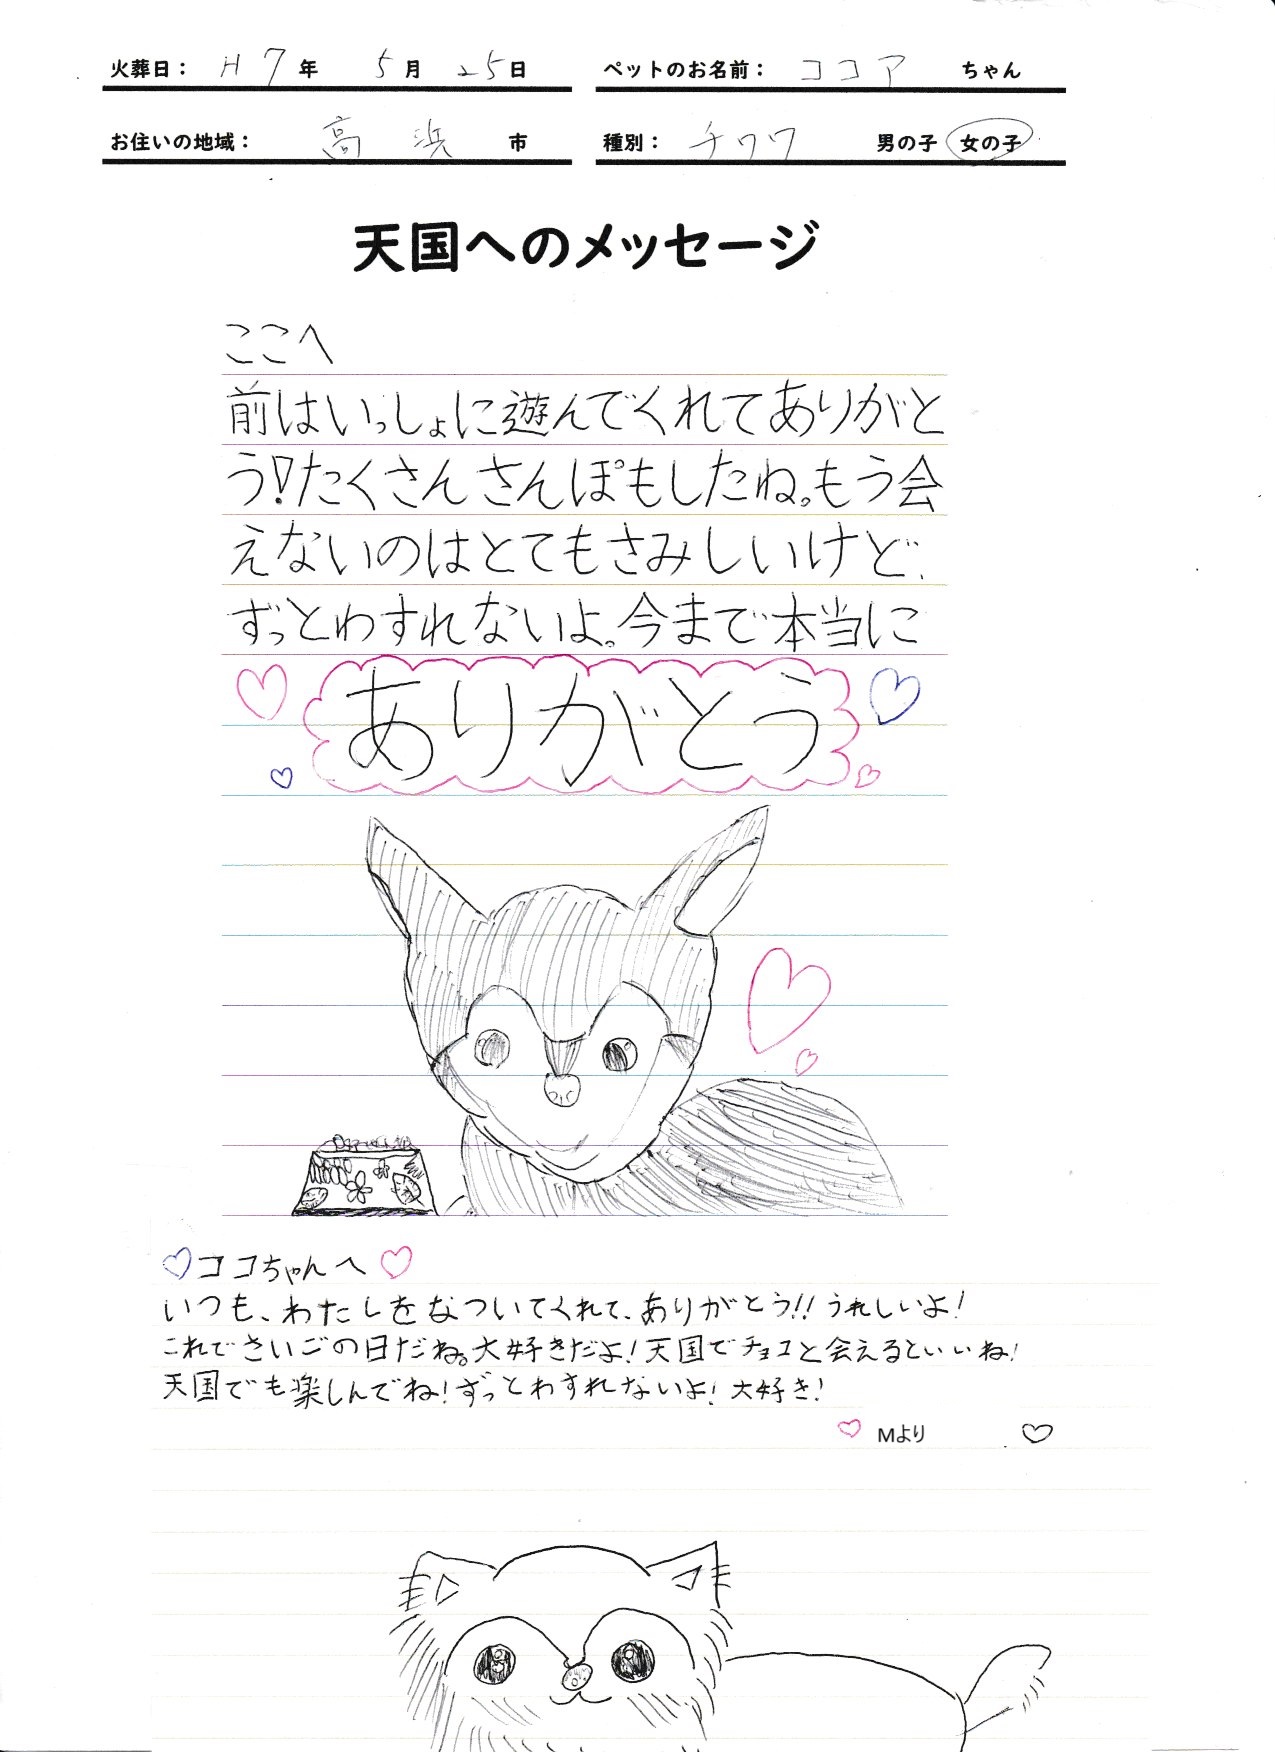 火葬日： H7年 5月 25日
ペットのお名前： ココア ちゃん
お住いの地域： 高浜 市
種別： チワワ 男の子 女の子
天国へのメッセージ
ここへ
前はいっしょに遊んでくれてありがと
う!たくさんさんぽもしたね。もう会
えないのはとてもさみしいけど、
ずっとわすれないよ。今まで本当に
ありがとう
ココちゃんへ
いつも、わたしをなついてくれて、ありがとう!!うれしいよ!
これでさいごの日だね。大好きだよ!天国でチョコと会えるといいね!
天国でも楽しんでね!ずっとわすれないよ!大好き!
Mより